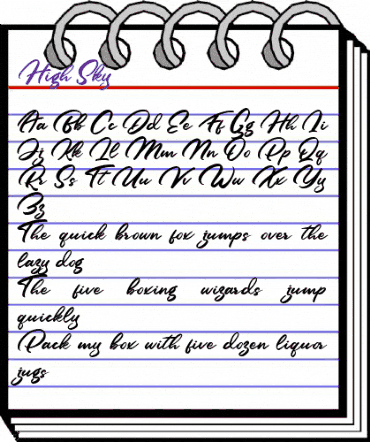 High Sky
Aa Bb Cc Dd Ee Ff Gg Hh Ii
Jj Kk Ll Mm Nn Oo Pp Qq
Rr Ss Tt Uu Vv Ww Xx Yy
Zz
The quick brown fox jumps over the
lazy dog
The five boxing wizards jump
quickly
Pack my box with five dozen liquor
jugs